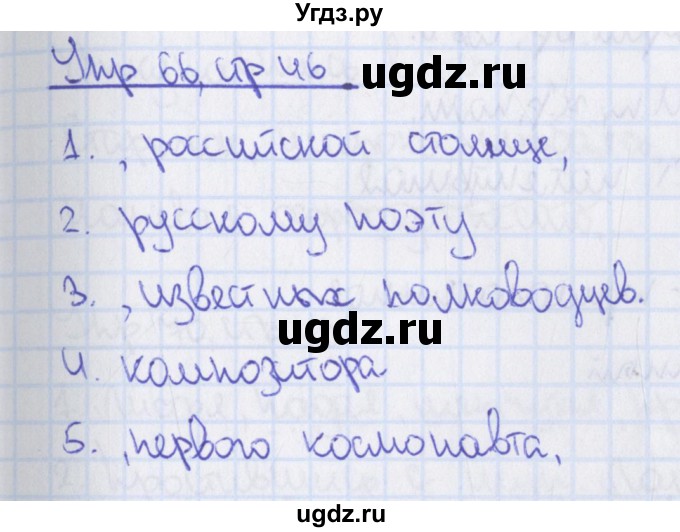 Угдз.ру
Упр 66, стр 46
ugdz.ru
1. , российской столице,
2. русскому поэту
ugdz.ru
3. , известных полководцев.
ugdz.ru
4. композитора
5. , первого космонавта,
ugdz.ru